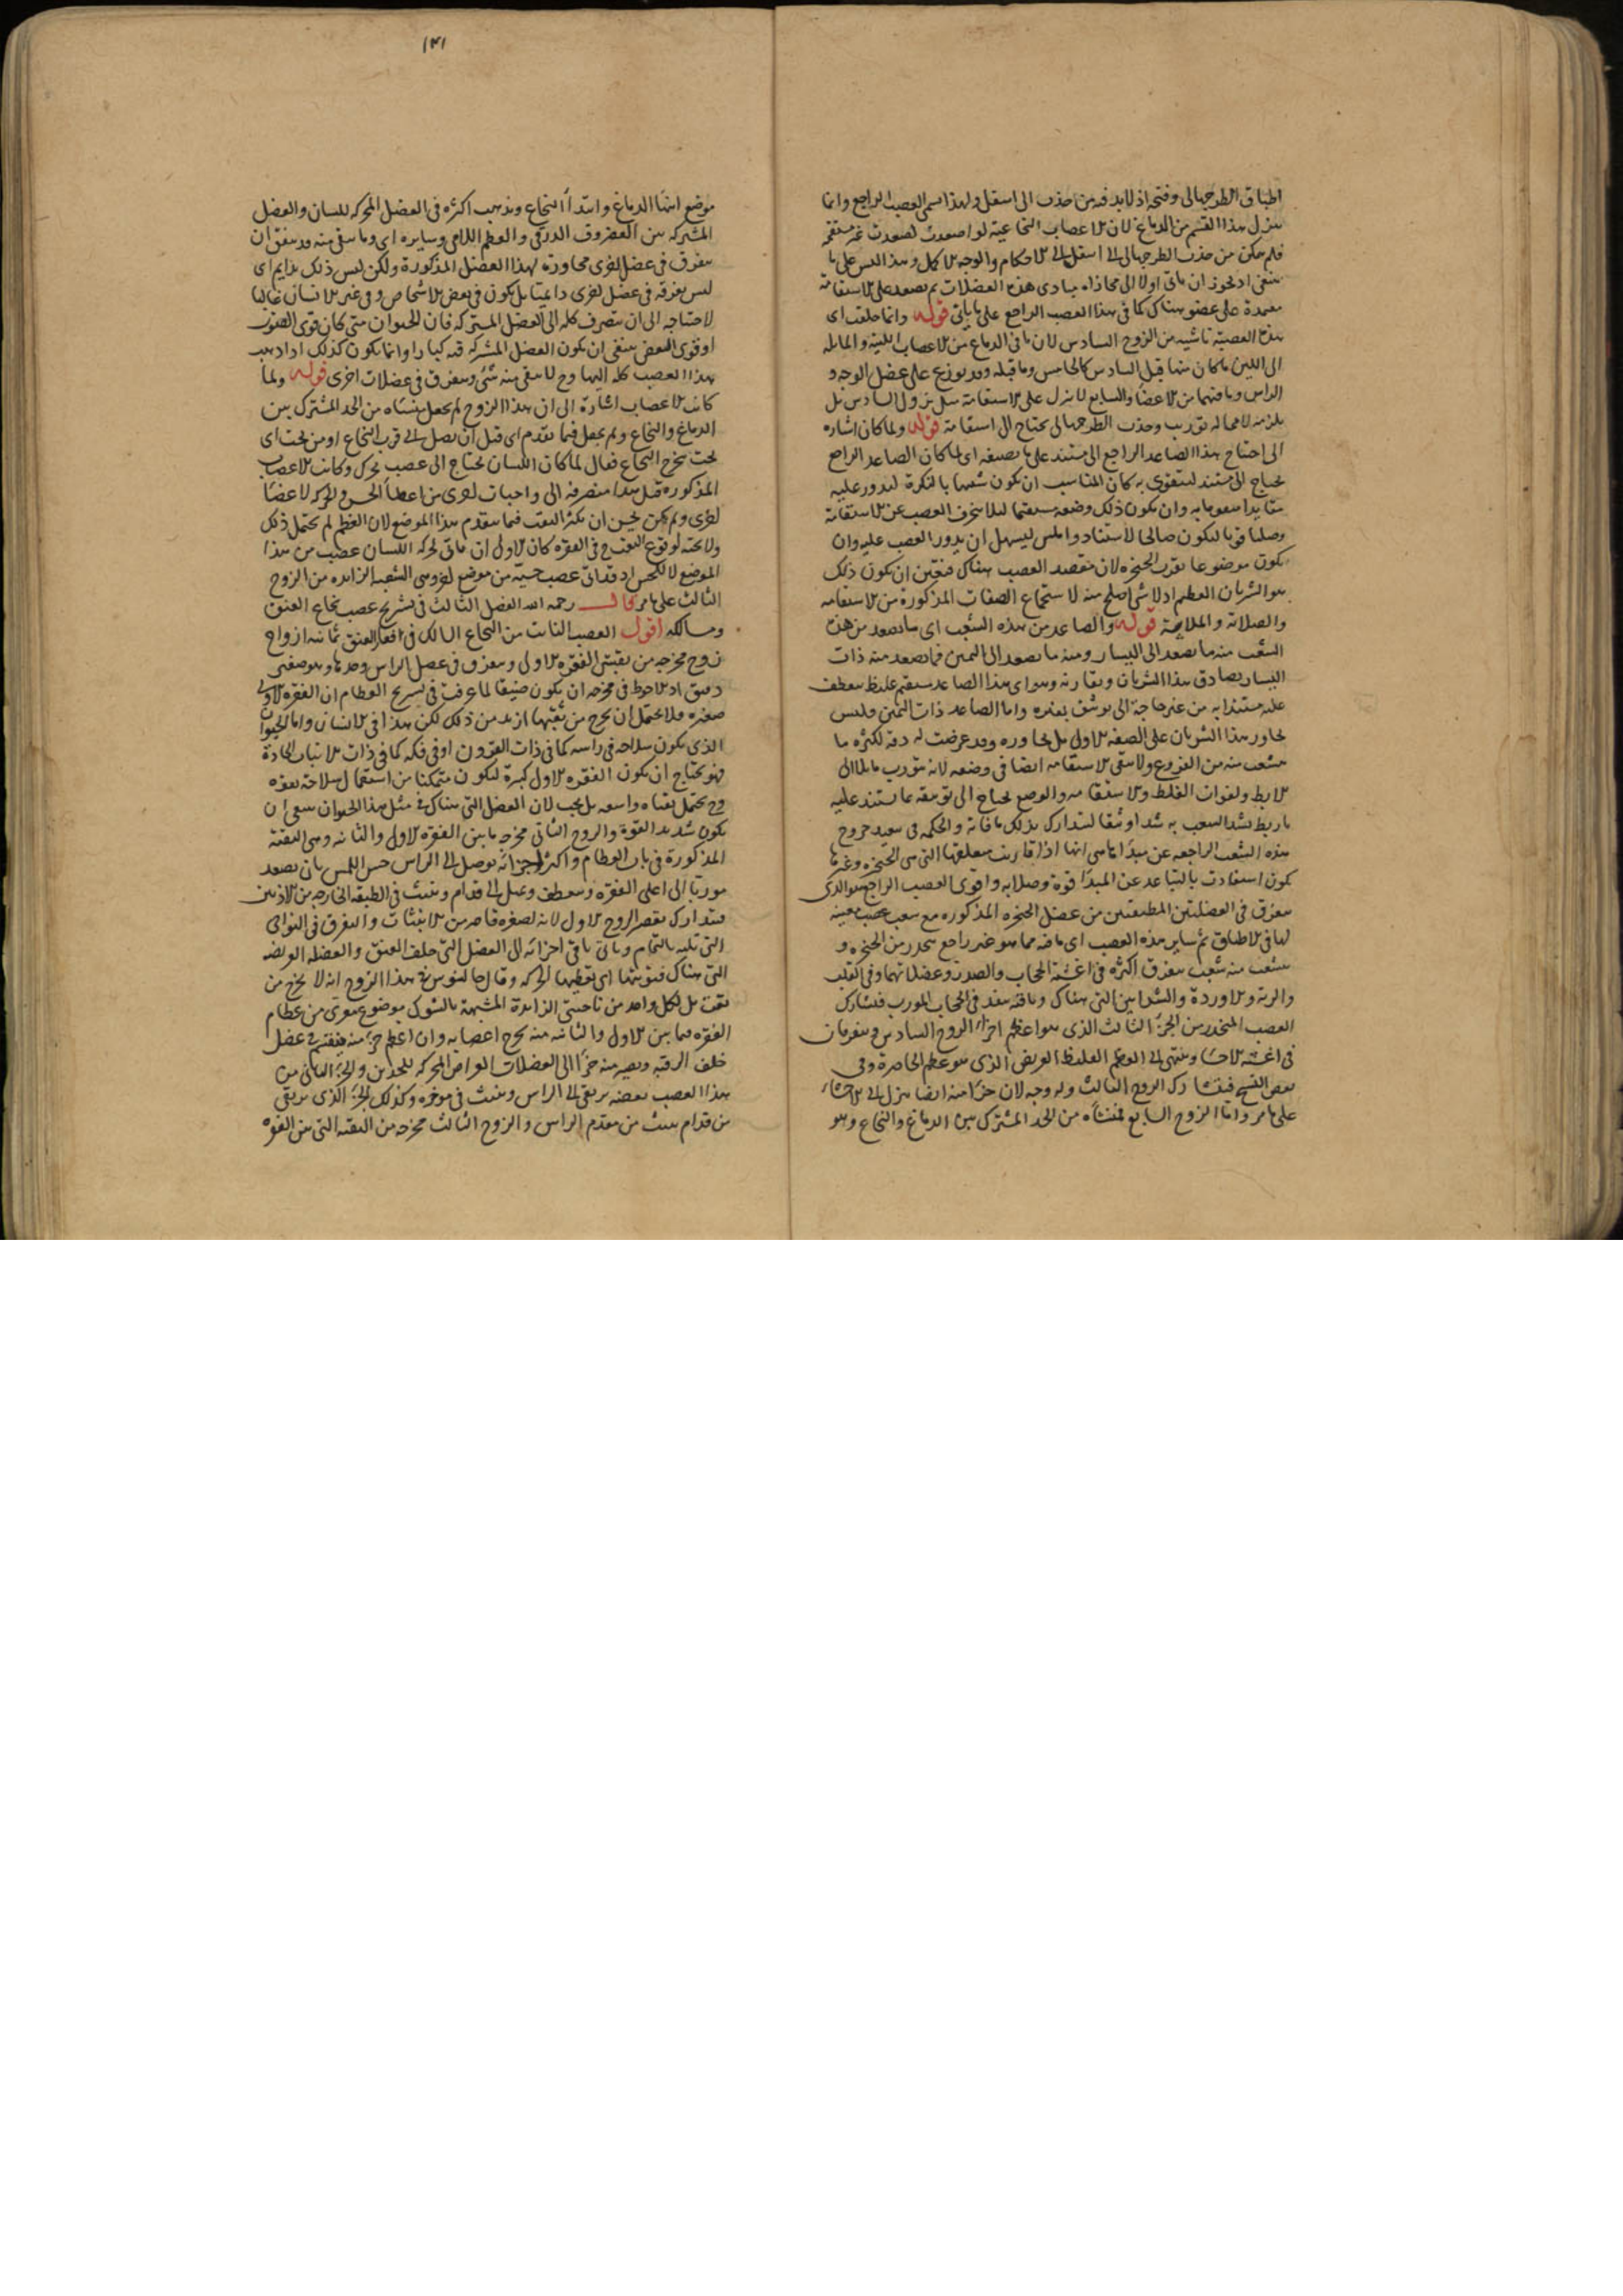 اطباق الطرجهالى وفتحه اذ لابد فيه من جذب الى اسفل ولهذا سمى العصب الراجع وانما
ينزل هذا القسم من الدماغ لان الاعصاب النخاعية لو اصعدت لصعدت غير مستقيمة
فلم يمكن من جذب الطرجهالى الى اسفل الى الاحكام والوجه الاكمل وهذا ليس على ما
ينبغى اذ يجوز ان ياتى اولا الى محاذاه مبادى هذه العضلات ثم يصعد على الاستقامة
معمدة على عضو هناك كما فى هذا العصب الراجع على ما ياتى قوله وانما خلقت اى
هذه العصبة ناشيه من الزوج السادس لان ما فى الدماغ من الاعصاب اللينة والمايله
الى اللين ما كان منها قبل السادس كالخامس وما قبله وقد توزع على عضل الوجه و
الراس وما فيهما من الاعضا والسابع لا ينزل على الاستقامة مثل نزول السادس بل
يلزمه لا محاله تورب وجذب الطرجهالى يحتاج الى استقامة قوله ولما كان اشاره
الى احتياج هذا الصاعد الراجع الى مستند على ما يصفه اى لما كان الصاعد الراجع
يحتاج الى مستند ليتقوى به كان المناسب ان يكون شبيها بالبكرة ليدور عليه
متايدا به وان يكون ذلك وضعه مستقيما ليلا ينحرف العصب عن الاستقامة
وصلبا قويا ليكون صالحا لاستناد واملس ليسهل ان يدور العصب عليه وان
يكون موضوعا بقرب الحنجره لان مقصد العصب هناك فتعين ان يكون ذلك
هو الشريان العظيم اذ لا شى اصلح منه لاستجماع الصفات المذكورة من الاستقامه
والصلابة والملاسة قوله والصاعد من هذه الشعب اى ما يصعد من هذه
الشعب منه ما يصعد الى اليسار ومنه ما يصعد الى اليمين فما يصعد منه ذات
اليسار يصادف هذا الشريان ويقارنه وهو اى هذا الصاعد مستقيم غليظ ينعطف
عليه مستندا به من غير حاجة الى توثيق بغيره واما الصاعد ذات اليمين فليس
يجاور هذا الشريان على الصفه الاولى بل يجاوره وقد عرضت له دقة لكثرة ما
ينشعب منه من الفروع ولا يبقى الاستقامه ايضا فى وضعه لانه يتورب مايلا الى
الابط ولفوات الغلظ والاستقامه والوضع يحتاج الى توثيقه بما يستند عليه
باربطه تشد الشعب به شدا وثيقا ليتدارك بذلك ما فاته والحكمه فى تبعيد خروج
هذه الشعب الراجعه عن مبدا ما هى انها اذا قاربت متعلقها التى هى الحنجره وغيرها
تكون استفادت بالتباعد عن المبدا قوة وصلابه واقوى العصب الراجع هو الذى
يتفرق فى العضلتين المطبقتين من عضل الحنجره المذكوره مع شعب عصب معينه
لها فى الاطباق ثم ساير هذه العصب اى باقيه مما هو غير راجع ينحدر من الحنجره و
يتشعب منه شعب يتفرق اكثره فى اغشية الحجاب والصدر وعضلاتهما وفى القلب
والرية والاوردة والشرايين التى هناك وباقيه ينفذ فى الحجاب المورب فيشارك
العصب المنحدر من الجزء الثالث الذى هو اعظم اجزا الزوج السادس ويتفرقان
فى اغشيه الاحشا وينتهى الى العظم الغليظ العريض الذى هو عظم الخاصرة وفى
بعض النسخ فيشارك الزوج الثالث وله وجه لان جزءا منه ايضا ينزل الى الاحشاء
على ما مر واما الزوج السابع فمنشاه من الحد المشترك بين الدماغ والنخاع وهو
١٣١
موضع انتها الدماغ وابتدا النخاع ويذهب اكثره فى العضل المحركه للسان والعضل
المشتركه بين الغضروف الدرقى والعظم اللامى وسايره اى وما يبقى منه قد يتفق ان
يتفرق فى عضل اخرى مجاورة لهذا العضل المذكورة ولكن ليس ذلك بدايم اى
ليس تفرقه فى عضل اخرى دايما بل يكون فى بعض الاشخاص وفى غير الانسان غالبا
لاحتياجه الى ان ينصرف كله الى العضل المشتركه فان الحيوان متى كان قوى الصوت
او قوى العض ينبغى ان يكون العضل المشتركه فيه كبارا وانما يكون كذلك اذا ذهب
هذا العصب كله اليها وح لا يبقى منه شى ويتفرق فى عضلات اخرى قوله ولما
كانت الاعصاب اشارة الى ان هذا الزوج لم يجعل منشاه من الحد المشترك بين
الدماغ والنخاع ولم يجعل فيما تقدم اى قبل ان يصل الى قرب النخاع او من تحت اى
تحت مخرج النخاع فقال لما كان اللسان يحتاج الى عصب يحرك وكانت الاعصاب
المذكوره قبل هذا منصرفه الى واجبات اخرى من اعطا الحس والحركه لاعضا
اخرى ولم يكن يحسن ان يكثر الثقب فيما يتقدم هذا الموضع لان العظم لم يحتمل ذلك
ولا تحته لوقوع الثقب فى الفقره كان الاولى ان ياتى لحركه اللسان عصب من هذا
الموضع لا للحس اذ قد اتى عصب حسه من موضع اخر وهى الشعبه الزايده من الزوج
الثالث على ما مر قال رحمه الله الفصل الثالث فى تشريح عصب نخاع العنق
ومسالكه اقول العصب النابت من النخاع السالك فى فقار العنق ثمانيه ازواج
زوج مخرجه من ثقبتى الفقره الاولى ويتفرق فى عضل الراس وحدها وهو صغير
دقيق اذ الاحوط فى مخرجه ان يكون ضيقا لما عرفت فى تشريح العظام ان الفقره الاولى
صغيره ولا يحتمل ان يخرج من ثقبتها ازيد من ذلك لكن هذا فى الانسان واما الحيوان
الذى يكون سلاحه فى راسه كما فى ذات القرون او فى فكه كما فى ذات الانياب الحادة
فهو يحتاج ان يكون الفقره الاولى كبيرة ليكون متمكنا من استعمال سلاحه بقوه
وح يحتمل ثقبا واسعه بل يجب لان العضل التى هناك فى مثل هذا الحيوان ينبغى ان
يكون شديد القوة والزوج الثانى مخرجه ما بين الفقره الاولى والثانيه وهى الثقبة
المذكورة فى باب العظام واكثر اجزائه توصل الى الراس حس اللمس بان يصعد
موربا الى اعلى الفقره وينعطف ويميل الى قدام وينبث فى الطبقه الخارجه من الاذنين
فيتدارك تقصير الزوج الاول لانه لصغره قاصر من الانبثات والتفرق فى النواحى
التى تليه بالتمام وياتى باقى اجزائه الى العضل التى خلف العنق والعضله العريضه
التى هناك فيؤتيها اى يعطيها الحركه وقال جالينوس فى هذا الزوج انه لا يخرج من
ثقب بل لكل واحد من ناحيتى الزايدة المشبهة بالشوك موضع معرى من عظام
الفقره فيما بين الاولى والثانيه منه يخرج اعصابه وان اعظم جزء منه ينقسم فى عضل
خلف الرقبه ويصير منه جزء الى العضلات العراض المحركه للخدين والجزء الثانى من
هذا العصب بعضه يرتقى الى الراس وينبث فى موخره وكذلك الجزء الذى يرتقى
من قدام ينبث من مقدم الراس والزوج الثالث مخرجه من الثقبه التى بين الفقره